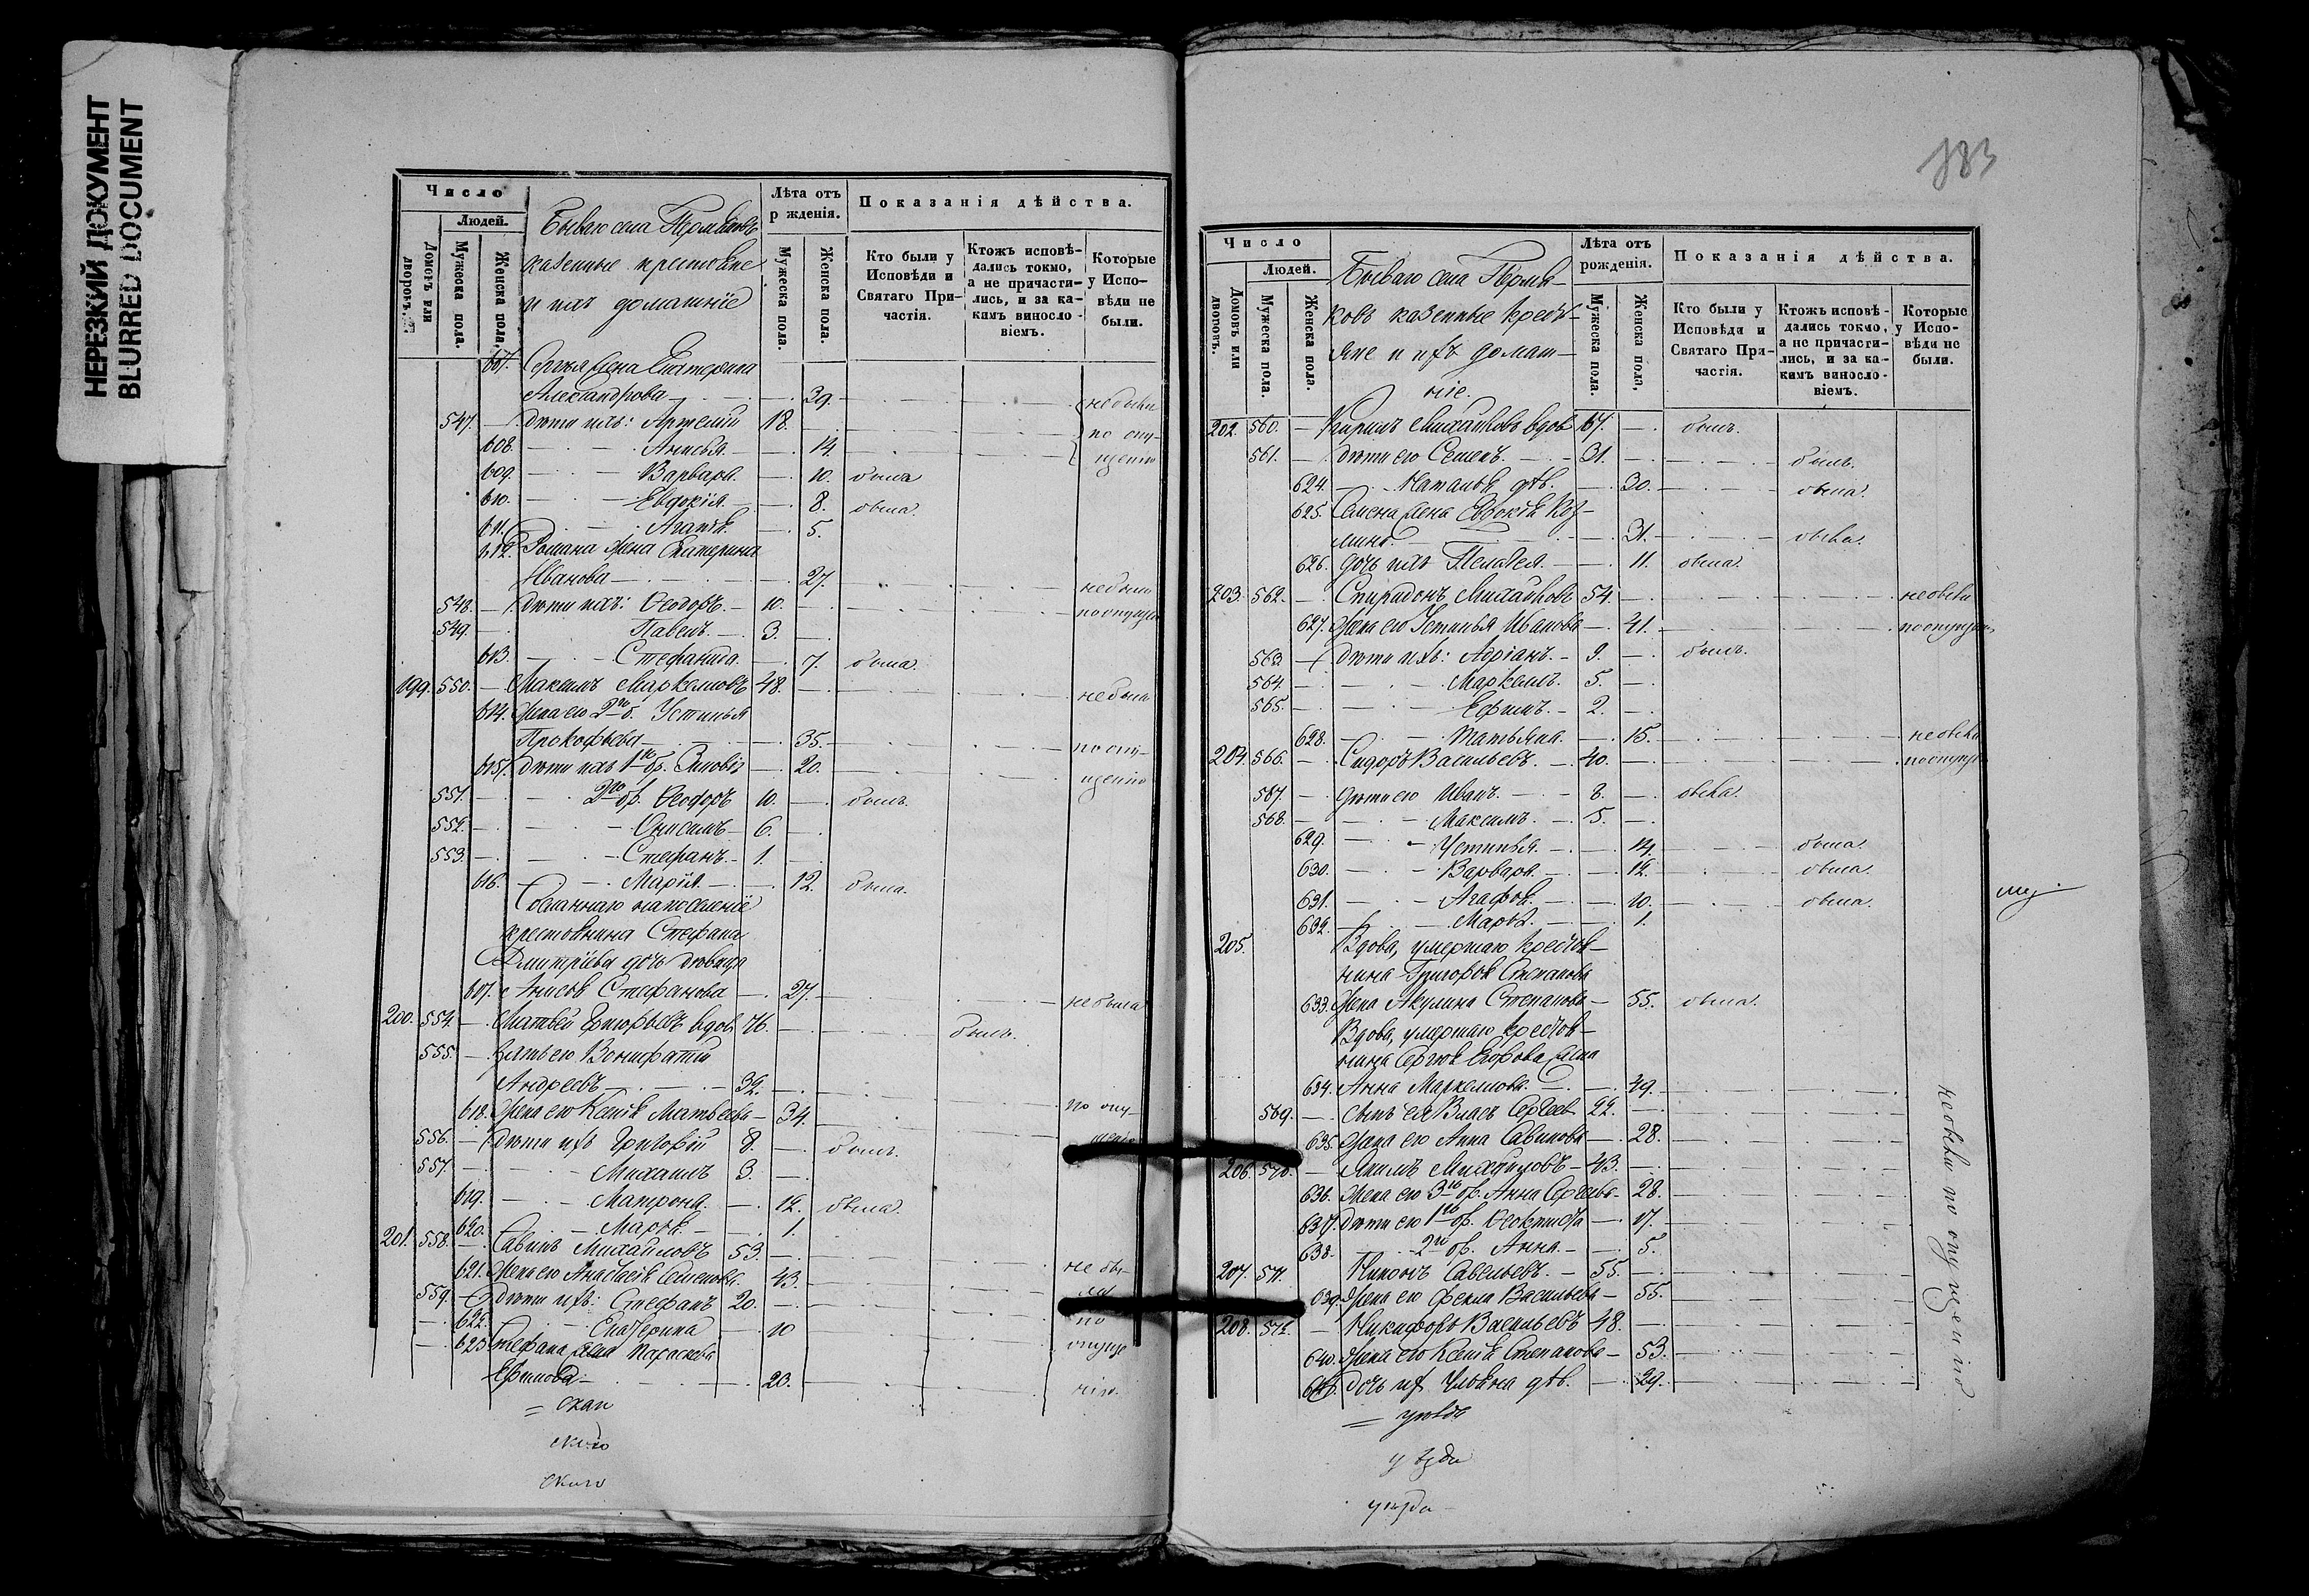 НЕРЕЗКИЙ ДОКУМЕНТ
BLURRED DOCUMENT
Число
Людей.
Домовъ или дворовъ.
Мужеска пола.
Женска пола.
казенные крестьяне
и ихъ домашніе
Лѣта отъ
р жденія.
Мужеска пола.
Женска пола.
Показанія дѣйства.
Кто были у Исповѣди и Святаго Причастія.
Ктожъ исповѣдались токмо, а не причастились, и за какимъ винословіемъ.
Которые у Исповѣди не были.
607. Сергѣя жена Екатерина
Александрова 39. не были
547. дѣти ихъ: Артемій 18. по опу-
608. Анисья 14 щенію
609. Варвара. 10. была
610. Евдокія. 8. была.
611. Агапія. 5.
612. Романа жена Екатерина
Иванова 27. не были
548. дѣти ихъ: Ѳеодоръ. 10. по опущен
549. Павелъ. 3.
613. Стефанида. 7. была.
199. 550. Максимъ Маркеловъ 48. не были
614. Жена его 2го б. Устинья
Прокофьева 35. по опу-
615. дѣти ихъ 1го бр. Зиновія 20. щенію
551. 2го бр. Ѳеодоръ 10. былъ.
552. Онисимъ 6.
553. Стефанъ. 1.
616. Марія. 12. была.
Сосланнаго на поселеніе
крестьянина Стефана
Дмитріева дочь дѣвица
617. Анисья Стефанова 27. не была
200. 554. Матвей Григорьевъ вдов 76. былъ.
555. Зять его Вонифатій
Андреевъ 32.
618. Жена его Ксенія Матвеева 34. по опу-
556. дѣти ихъ Григорій 8. былъ. щенію
557. Михаилъ 3.
619. Матрона. 12. была.
620. Марѳа 1.
201. 558. Савинъ Михайловъ 53.
621. Жена его Анастасія Семенова. 43. не бы-
559. дѣти ихъ: Стефанъ 20. ли
622. Екатерина 10 по
623 Стефана жена Параскева опуще
Ефимова 20. нію.
скаго
183
Число
Людей.
Домовъ или дворовъ.
Мужеска пола.
Женска пола.
ковъ казенные кресть-
яне и ихъ домаш-
ніе.
Лѣта отъ
рожденія.
Мужеска пола
Женска пола,
Показанія дѣйства.
Кто были у Исповѣди и Святаго Причастія.
Ктожъ исповѣдались токмо, а не причастились, и за какимъ винословіемъ.
Которые у Исповѣди не были.
202. 560. Кирилъ Михайловъ вдов 67. былъ.
561. дѣти его Семенъ. 31. былъ.
624. Наталья дѣв. 30. была.
625. Семена жена Евдокія Коз-
мина. 31. была.
626. дочь ихъ Пелагея. 11. была.
203. 562. Спиридонъ Михайловъ 54. не были
627. Жена его Устинья Иванова 41. по опущен
563 дѣти ихъ: Адріанъ. 9. былъ.
564. Маркелъ. 5.
565. Ефимъ. 2.
628. Татьяна. 15. не были
204. 566. Сидоръ Васильевъ. 40. по опуще
567. дѣти его Иванъ. 8.
568. Максимъ. 5.
629. Устинья. 14. была.
630. Варвара. 12. была.
631. Агафья. 10. была.
632. Марѳа. 1.
205. Вдова, умершаго крестья-
нина Григорья Степанова
633. жена Акулина Степанова 55. была.
Вдова, умершаго крестья-
нина Сергѣя Егорова жена
634. Анна Маркелова. 49.
569. сынъ ея Власъ Сергѣев 22.
635. Жена его Анна Савинова 28.
206. 570. Якимъ Михайловъ 43.
636. Жена его 3го бр. Анна Сергѣева 28.
637. дѣти его 1го бр. Ѳеоктиста 17.
638. 2го бр. Анна. 5.
207. 571. Никонъ Савельевъ. 55.
639. Жена его Фекла Васильева 55.
208. 572. Никифоръ Васильевъ 48.
640. Жена его Ксенія Степанова 53.
641. дочь их Ульяна дѣв. 29.
не были по опущенію
уѣзда